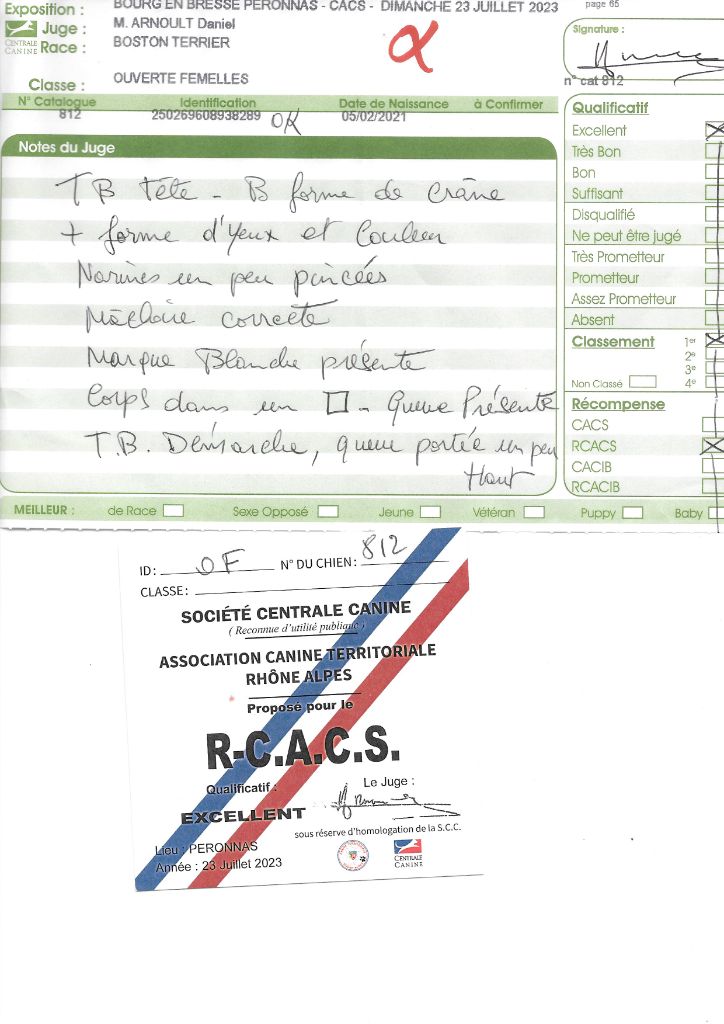 Exposition : BOURG EN BRESSE PERONNAS - CACS - DIMANCHE 23 JUILLET 2023
page 65
Juge : M. ARNOULT Daniel
CENTRALE CANINE
Race : BOSTON TERRIER
α
Signature :
n° cat 812
Classe : OUVERTE FEMELLES
N° Catalogue Identification Date de Naissance à Confirmer
812 250269608938289 OK 05/02/2021
Notes du Juge
TB tête - B forme de crâne
+ forme d'yeux et Couleur
Narines un peu pincées
Mâchoire correcte
Marque Blanche présente
Corps dans un □ - Queue Présente
T.B. Démarche, queue portée un peu
Haut
Qualificatif
Excellent
Très Bon
Bon
Suffisant
Disqualifié
Ne peut être jugé
Très Prometteur
Prometteur
Assez Prometteur
Absent
Classement 1er
2e
3e
Non Classé 4e
Récompense
CACS
RCACS
CACIB
RCACIB
MEILLEUR : de Race Sexe Opposé Jeune Vétéran Puppy Baby
ID : OF N° DU CHIEN : 812
CLASSE :
SOCIÉTÉ CENTRALE CANINE
( Reconnue d'utilité publique )
ASSOCIATION CANINE TERRITORIALE
RHÔNE ALPES
Proposé pour le
R-C.A.C.S.
Qualificatif : Le Juge :
EXCELLENT
sous réserve d'homologation de la S.C.C.
Lieu : PERONNAS
Année : 23 Juillet 2023
CENTRALE CANINE